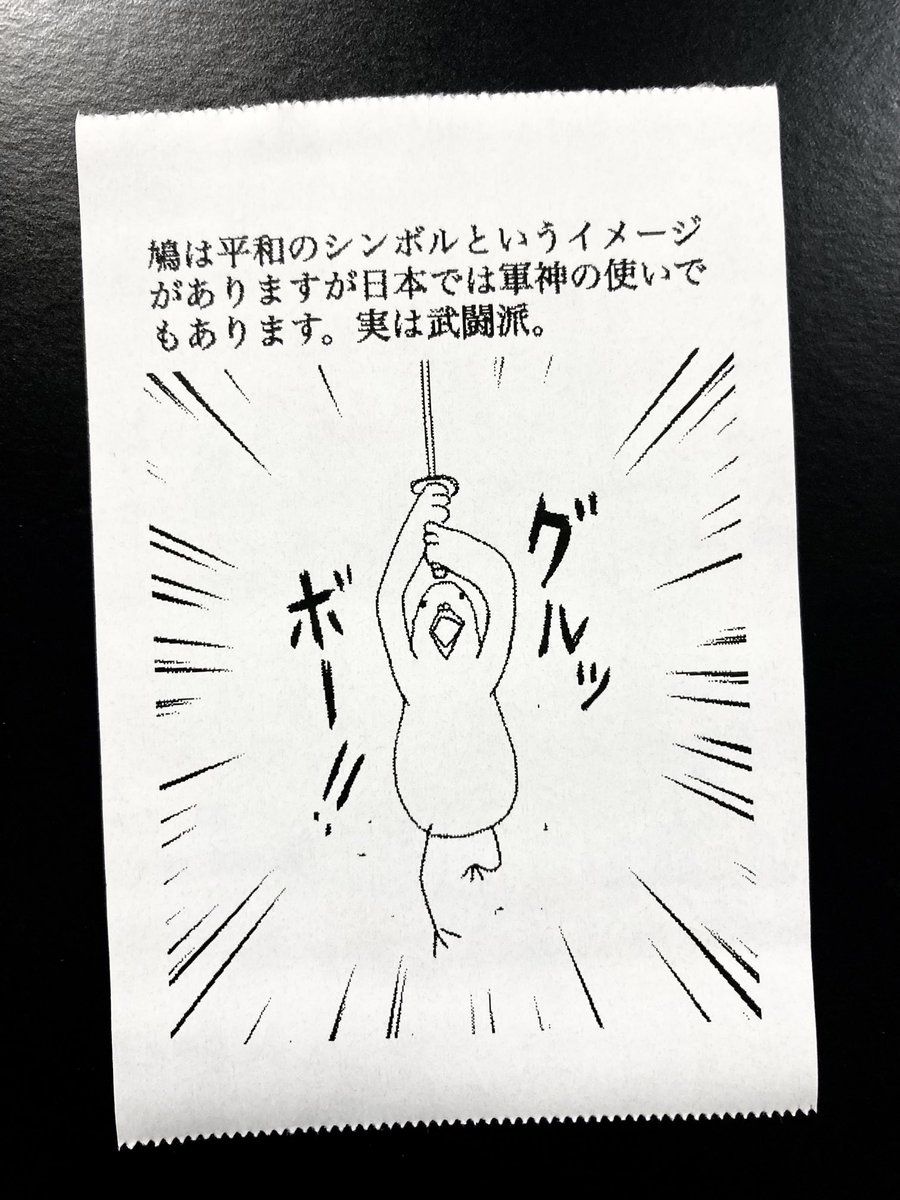 鳩は平和のシンボルというイメージ
がありますが日本では軍神の使いで
もあります。実は武闘派。
グルッ
ボー!!